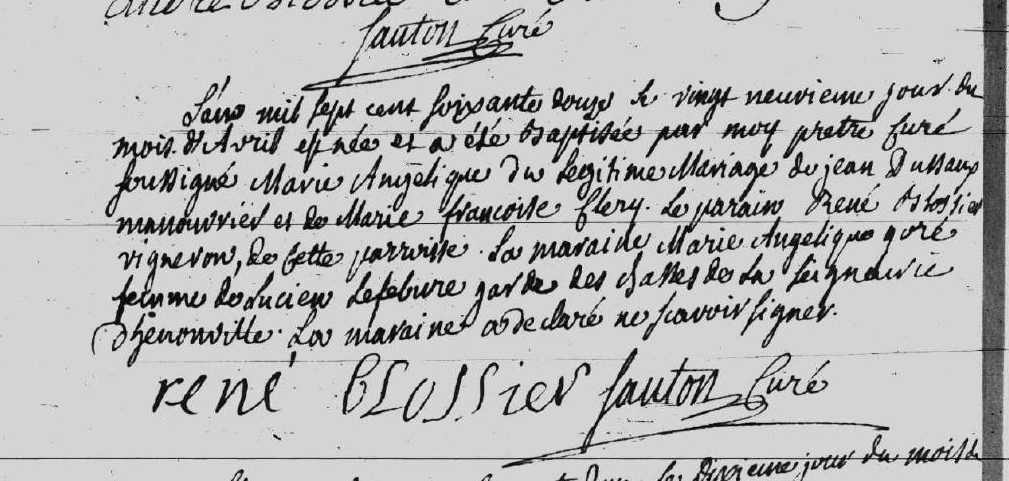 fauton Curé
L'an mil sept cent soixante douze le vingt neuvieme jour du
mois d'Avril est née et a été Baptisée par moy pretre Curé
soussigné Marie Angelique du legitime Mariage de jean Dussaux
manouvrier et de Marie francoise Clery. Le parain René Blossier
vigneron, de Cette parroisse. La maraine Marie Angelique goré
femme de Lucien Lefebure garde des chasses de La seigneurie
d'henonville. La maraine a declaré ne scavoir signer.
rené blossier fauton Curé
dixieme jour du mois de